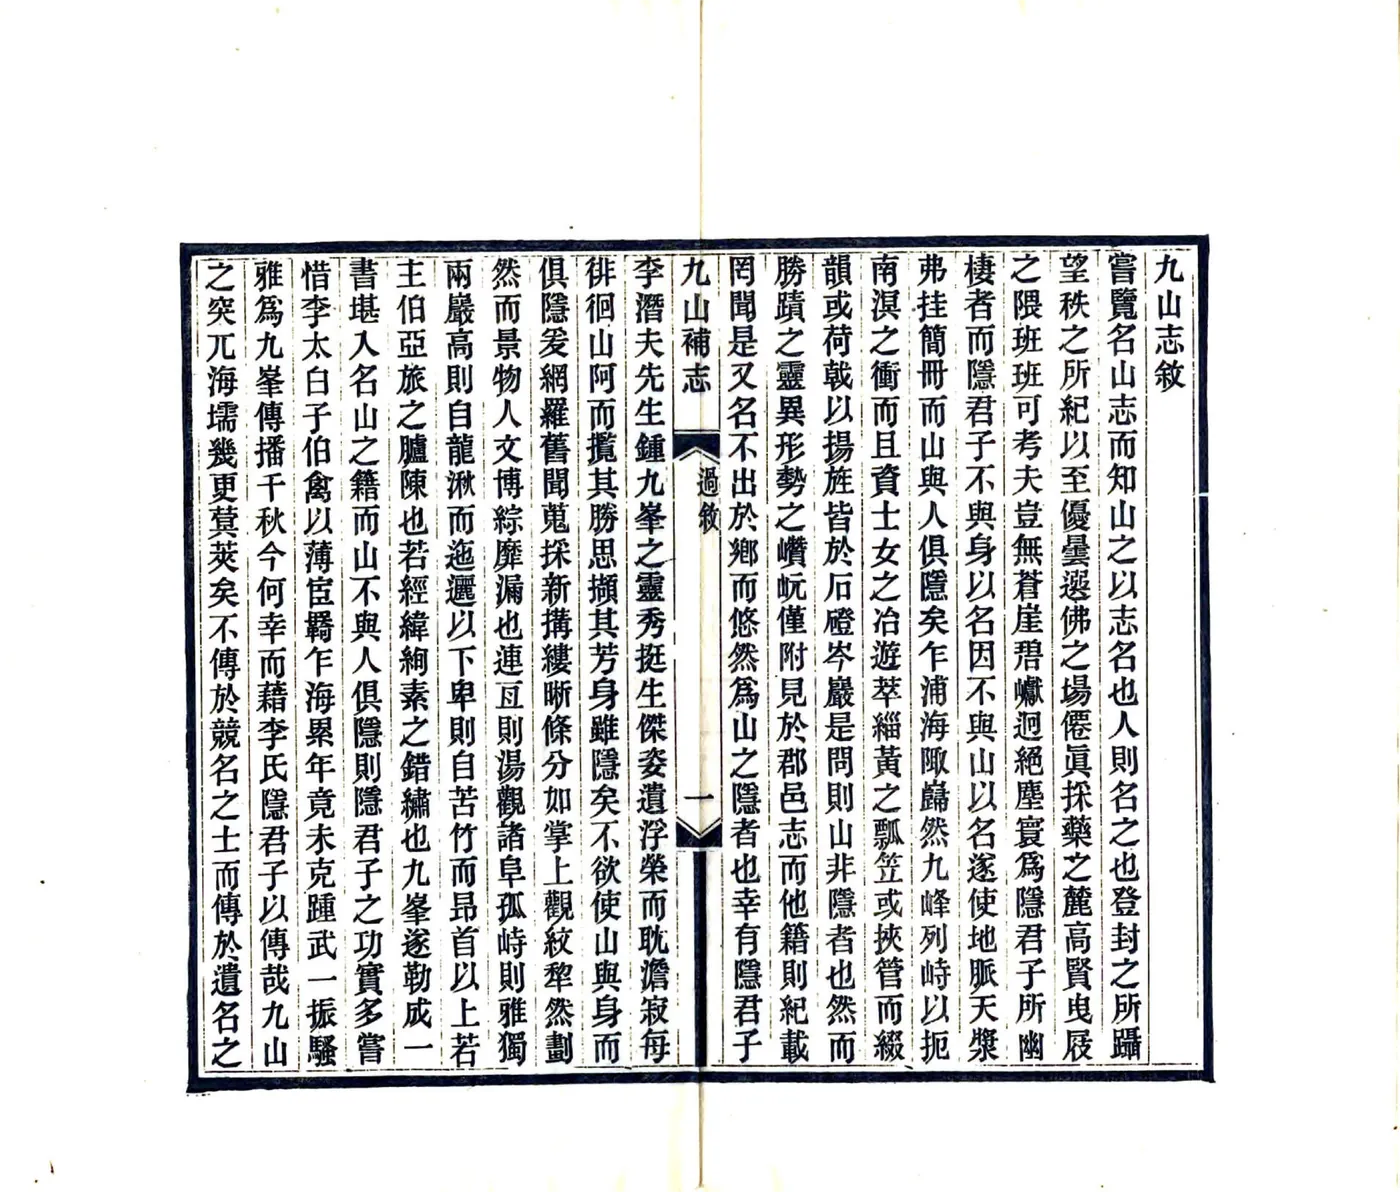 九山志敘
嘗覽名山志而知山之以志名也人則名之也登封之所躡
望秩之所紀以至優曇選佛之場僊眞採藥之麓高賢曳屐
之隈班班可考夫豈無蒼崖碧巘迥絕塵寰爲隱君子所幽
棲者而隱君子不與身以名因不與山以名遂使地脈天漿
弗挂簡冊而山與人俱隱矣乍浦海陬巋然九峰列峙以扼
南溟之衝而且資士女之冶遊萃緇黃之瓢笠或挾管而綴
韻或荷戟以揚旌皆於石磴岑巖是問則山非隱者也然而
勝蹟之靈異形勢之巑岏僅附見於郡邑志而他籍則紀載
罔聞是又名不出於鄉而悠然爲山之隱者也幸有隱君子
九山補志
過敘
一
李潛夫先生鍾九峯之靈秀挺生傑姿遺浮榮而耽澹寂每
徘徊山阿而攬其勝思擷其芳身雖隱矣不欲使山與身而
俱隱爰網羅舊聞蒐採新搆縷晰條分如掌上觀紋犂然劃
然而景物人文博綜靡漏也連亙則湯觀諸阜孤峙則雅獨
兩巖高則自龍湫而迤邐以下卑則自苦竹而昂首以上若
主伯亞旅之臚陳也若經緯絢素之錯繡也九峯遂勒成一
書堪入名山之籍而山不與人俱隱則隱君子之功實多嘗
惜李太白子伯禽以薄宦羇乍海累年竟未克踵武一振騷
雅爲九峯傳播千秋今何幸而藉李氏隱君子以傳哉九山
之突兀海壖幾更蓂莢矣不傳於競名之士而傳於遺名之